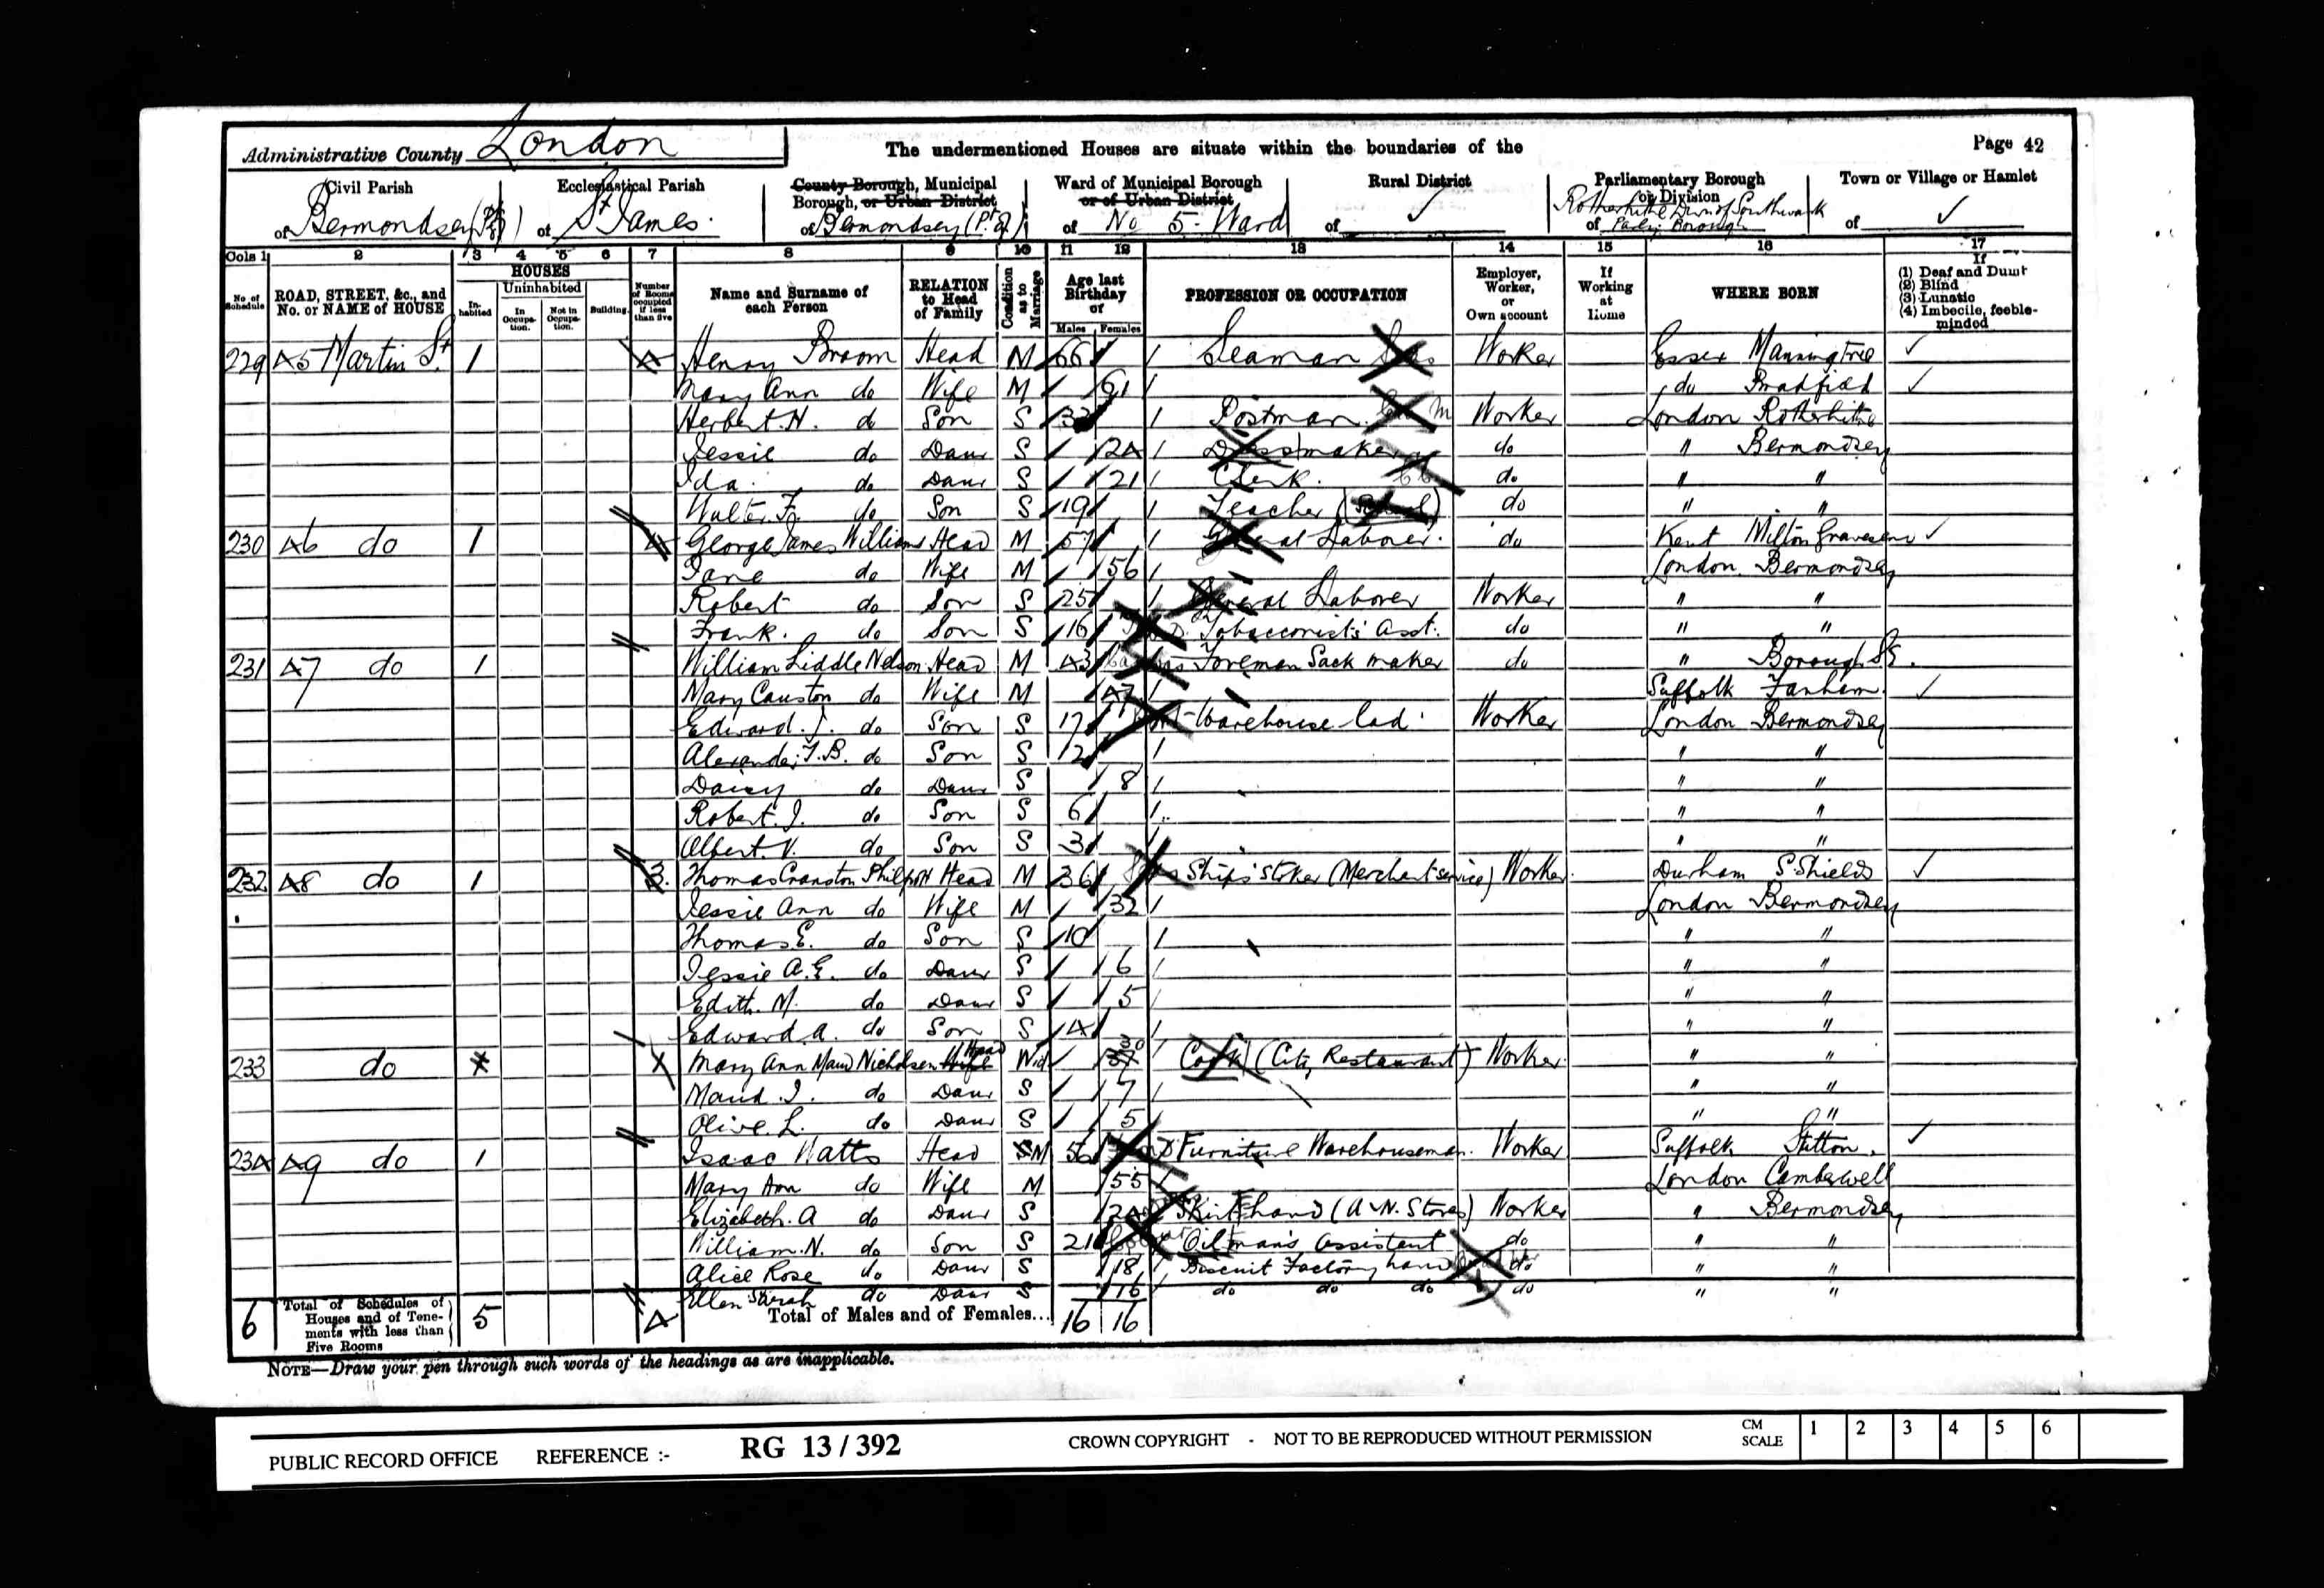 Administrative County London The undermentioned Houses are situate within the boundaries of the Page 42
Civil Parish Ecclesiastical Parish County Borough, Municipal Borough, or Urban District Ward of Municipal Borough or of Urban District Rural District Parliamentary Borough or Division Town or Village or Hamlet
of Bermondsey of St James. of Bermondsey of No 5. Ward of ✓ of Rotherhithe Divn of Southwark Parly. Borough of ✓
Cols 1 2 3 4 5 6 7 8 9 10 11 12 13 14 15 16 17
No. of Schedule ROAD, STREET, &c., and No. or NAME of HOUSE HOUSES Inhabited Uninhabited In Occupation. Not in Occupation. Building. Number of Rooms occupied if less than five Name and Surname of each Person RELATION to Head of Family Condition as to Marriage Age last Birthday of Males Females PROFESSION OR OCCUPATION Employer, Worker, or Own account If Working at Home WHERE BORN If (1) Deaf and Dumb (2) Blind (3) Lunatic (4) Imbecile, feeble-minded
229 45 Martin St 1 4 Henry Broom Head M 66 Seaman Worker Essex Manningtree ✓
Mary Ann do Wife M 61 do Bradfield ✓
Herbert. H. do Son S 33 Postman. Worker London Rotherhithe
Jessie do Daur S 24 Dressmaker do " Bermondsey
Ida. do Daur S 21 Clerk. do " "
Walter. F. do Son S 19 Teacher (School) do " "
230 46 do 1 4 George James Williams Head M 57 General Laborer. do Kent Milton Gravesend ✓
Jane do Wife M 56 London Bermondsey
Robert do Son S 25 General Laborer Worker " "
Frank. do Son S 16 Tobacconist's Asst. do " "
231 47 do 1 William Liddle Nelson Head M 43 Foreman Sack maker do " Borough S.E.
Mary Causton do Wife M 47 Suffolk Farnham. ✓
Edward. J. do Son S 17 Warehouse lad. Worker London Bermondsey
Alexander T. B. do Son S 12 " "
Daisy do Daur S 8 " "
Robert. J. do Son S 6 " "
Albert. V. do Son S 3 " "
232 48 do 1 3. Thomas Cranston Philpott Head M 36 Ship's Stoker (Merchant service) Worker. Durham S. Shields ✓
Jessie Ann do Wife M 32 London Bermondsey
Thomas E. do Son S 10 " "
Jessie A. E. do Daur S 6 " "
Edith. M. do Daur S 5 " "
Edward. A. do Son S 4 " "
233 do Mary Ann Maud Nicholsen Wife Head Wid 37 30 Cook (City Restaurant) Worker " "
Maud. I. do Daur S 7 " "
Olive. L. do Daur S 5 " "
234 49 do 1 Isaac Watts Head S M 56 Furniture Warehouseman. Worker Suffolk Stutton. ✓
Mary Ann do Wife M 55 London Camberwell
Elizabeth. A do Daur S 24 Skirt hand (A & N. Stores) Worker " Bermondsey
William. N. do Son S 21 Oilman's Assistant do " "
Alice Rose do Daur S 18 Biscuit Factory hand do " "
Ellen Sarah do Daur S 16 do do do do " "
6 Total of Schedules of Houses and of Tenements with less than Five Rooms 5 4 Total of Males and of Females... 16 16
NOTE—Draw your pen through such words of the headings as are inapplicable.
PUBLIC RECORD OFFICE REFERENCE :- RG 13 / 392 CROWN COPYRIGHT - NOT TO BE REPRODUCED WITHOUT PERMISSION CM SCALE 1 2 3 4 5 6